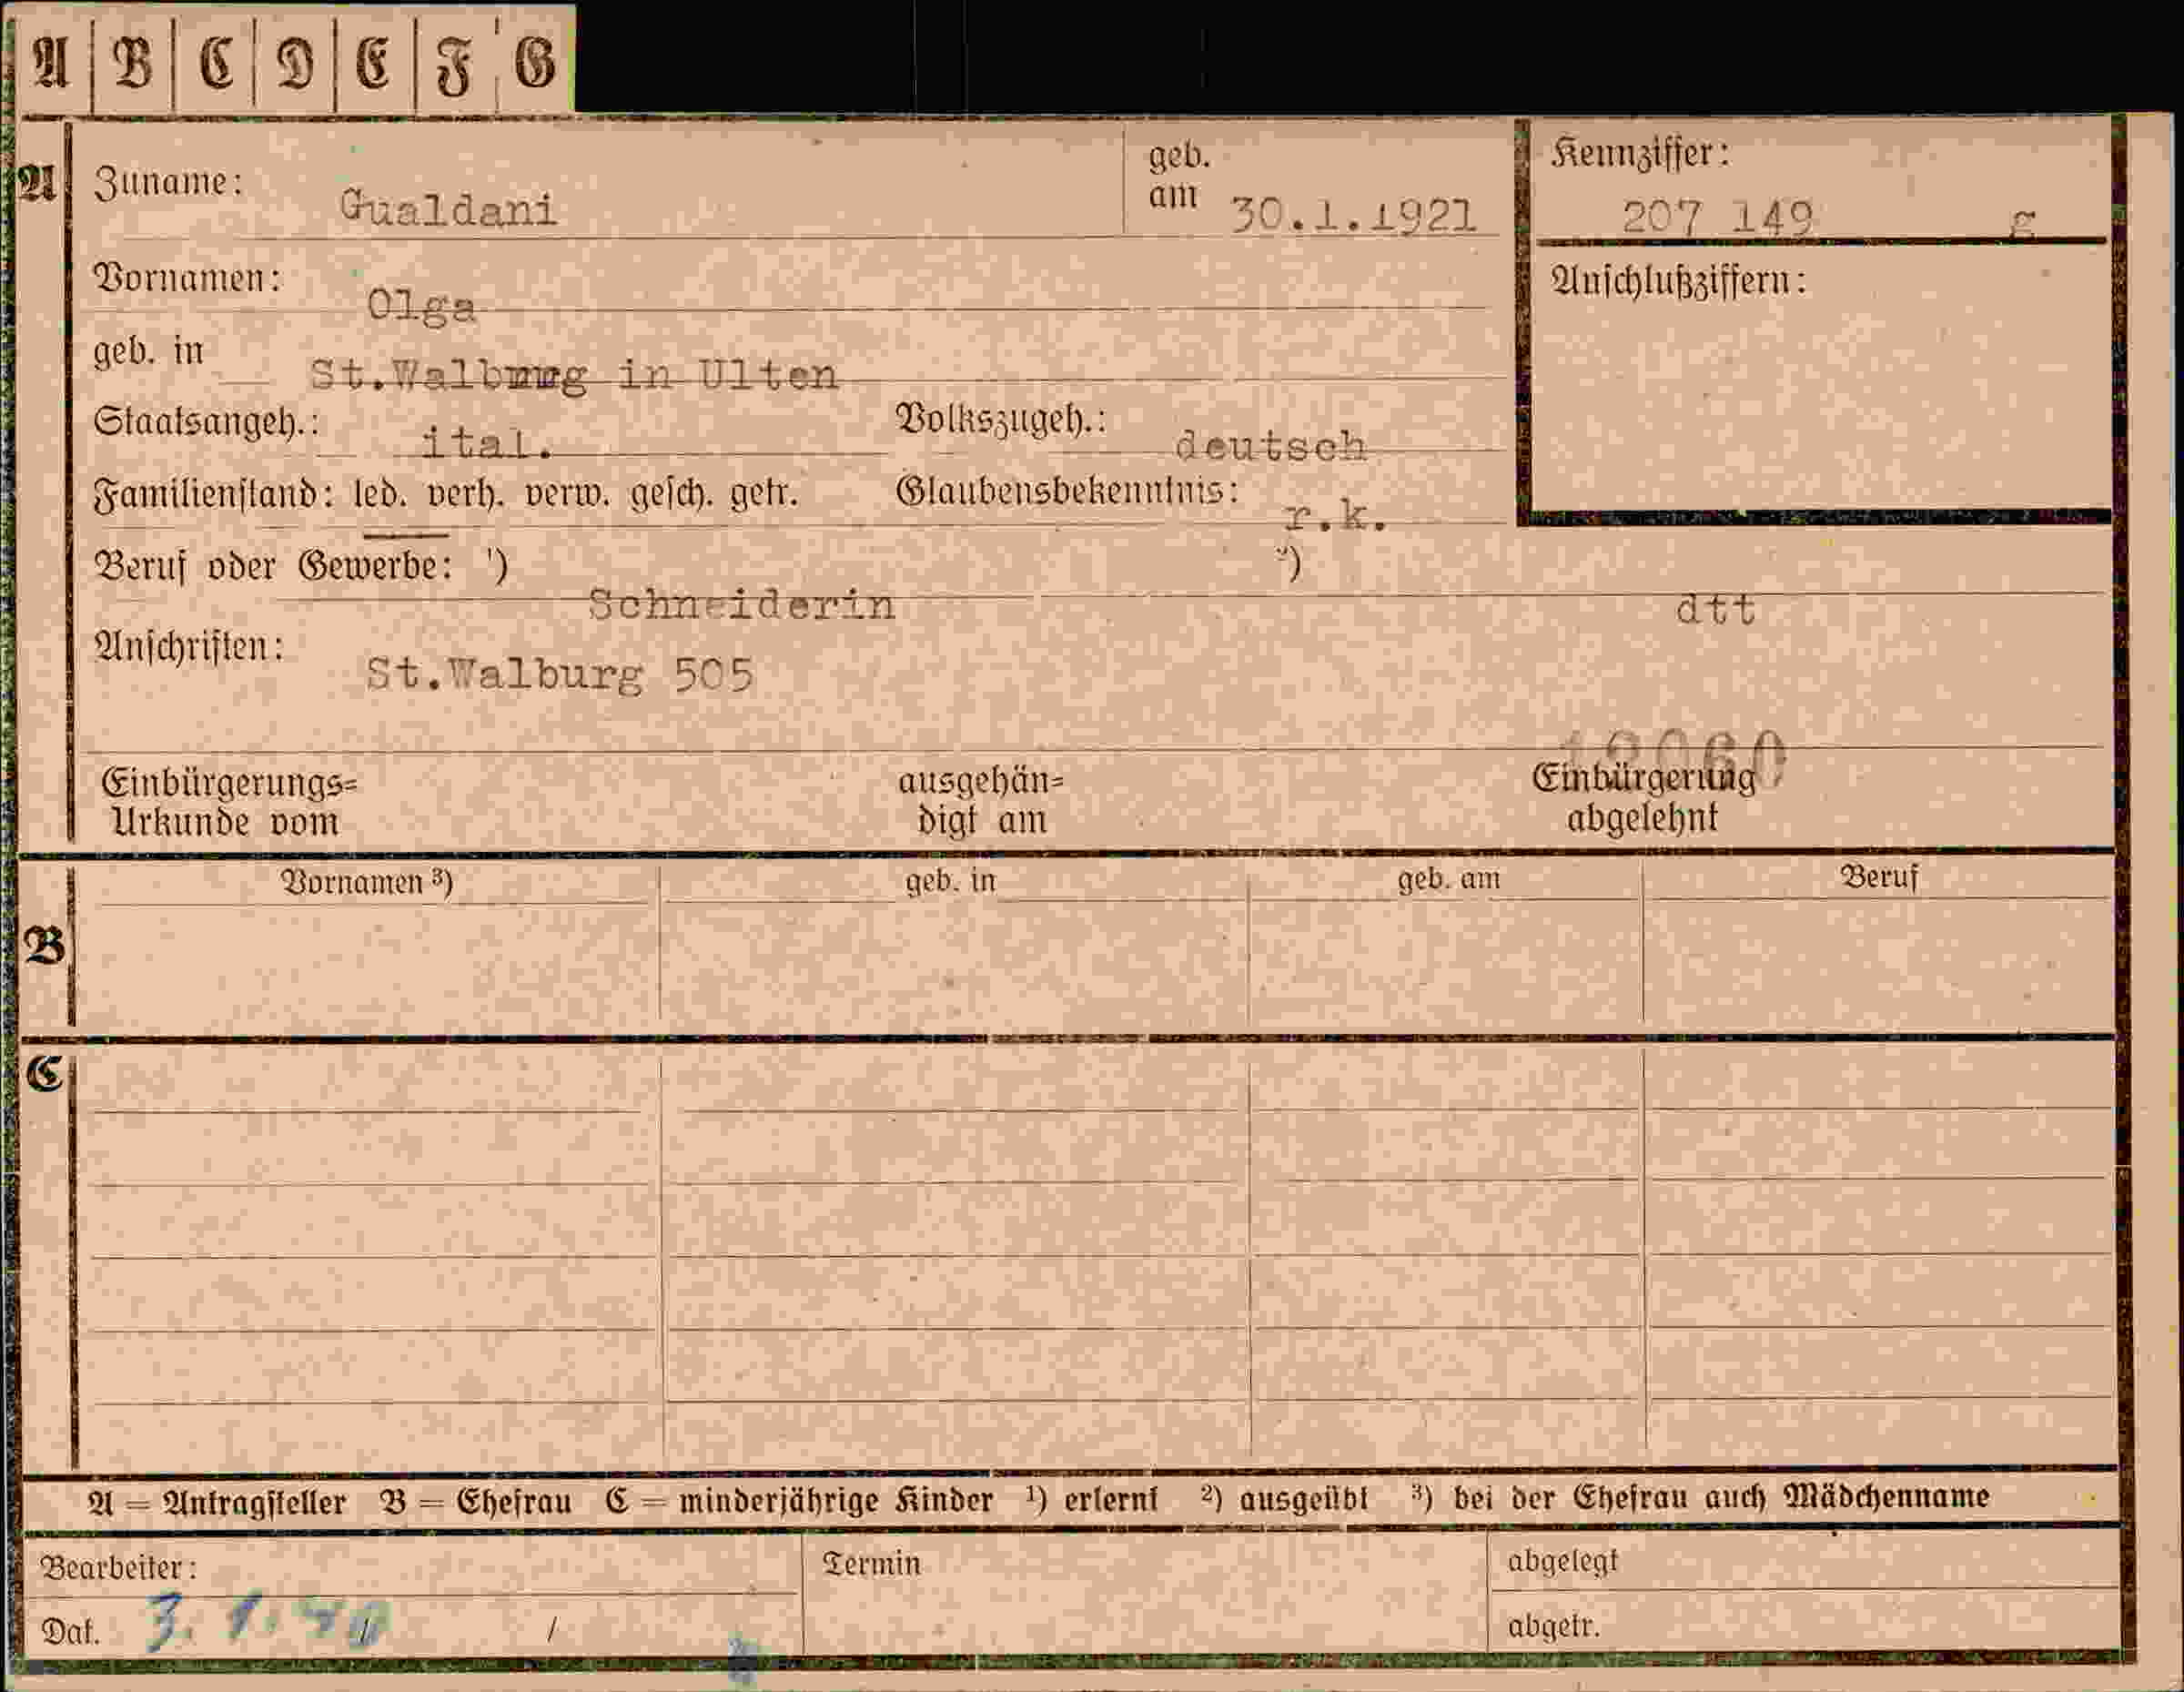 A B C D E F G
A Zuname: Gualdani geb. am 30.1.1921
Kennziffer: 207 149 g
Vornamen: Olga
Anschlußziffern:
geb. in St.Walburg in Ulten
Staatsangeh.: ital. Volkszugeh.: deutsch
Familienstand: led. verh. verw. gesch. getr. Glaubensbekenntnis: r.k.
Beruf oder Gewerbe: ¹) Schneiderin ²) dtt
Anschriften: St.Walburg 505
Einbürgerungs= ausgehän= Einbürgerung
Urkunde vom digt am abgelehnt
B Vornamen ³) geb. in geb. am Beruf
C
A = Antragsteller B = Ehefrau C = minderjährige Kinder ¹) erlernt ²) ausgeübt ³) bei der Ehefrau auch Mädchenname
Bearbeiter: Termin abgelegt
Dat. 3. 1. 40 / / abgetr.